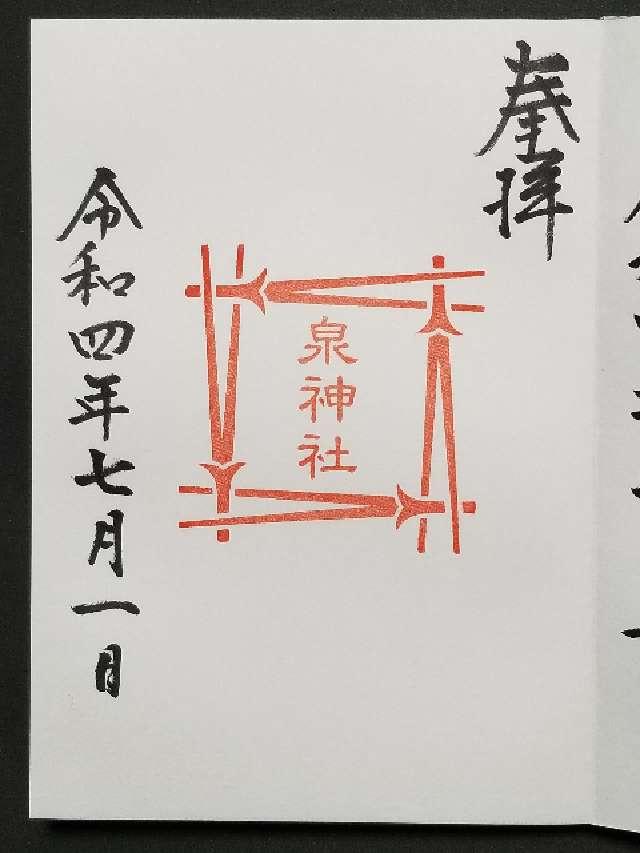 奉拝
泉神社
令和四年七月一日